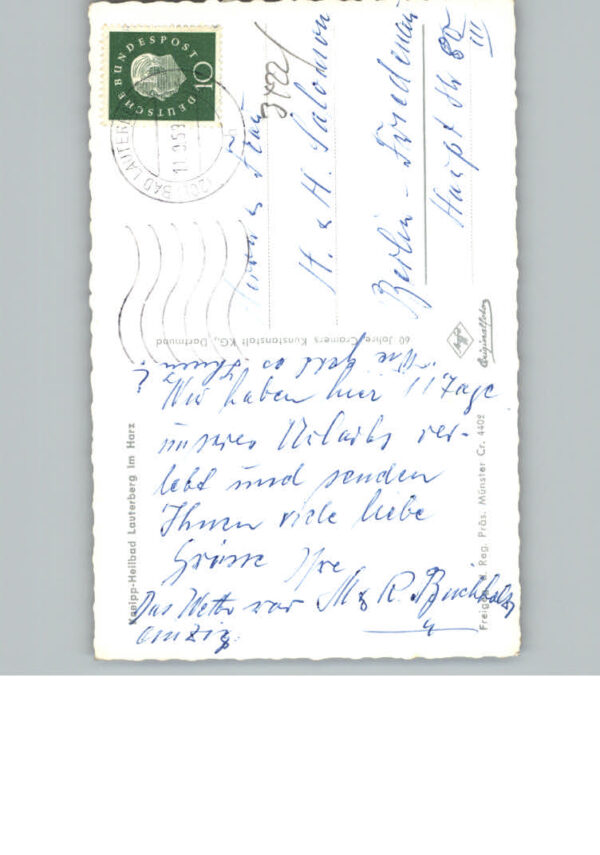 DEUTSCHE BUNDESPOST
10
(20) BAD LAUTERB
11.9.59
3422/
Herrn u. Frau
H. u. H. Salomon
Berlin-Friedenau
Hauptstr 80
III
60 Jahre Cramers Kunstanstalt KG., Dortmund
Originalfoto
Wie geht es Ihnen?
Wir haben hier 11 Tage
unseres Urlaubs ver-
lebt und senden
Ihnen viele liebe
Grüsse Ihre
M & R. Buchholz
Das Wetter war
einzig.
Kneipp-Heilbad Lauterberg im Harz
Freig. Reg. Präs. Münster Cr. 4402